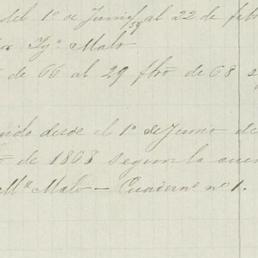 del 1º de Junio 59 al 22 de feb
Ygº Malo
de 66 al 29 fbro de 68
desde el 1º de Junio de
de 1868 segun la cuen
Mª Malo — Cuaderno nº 1.